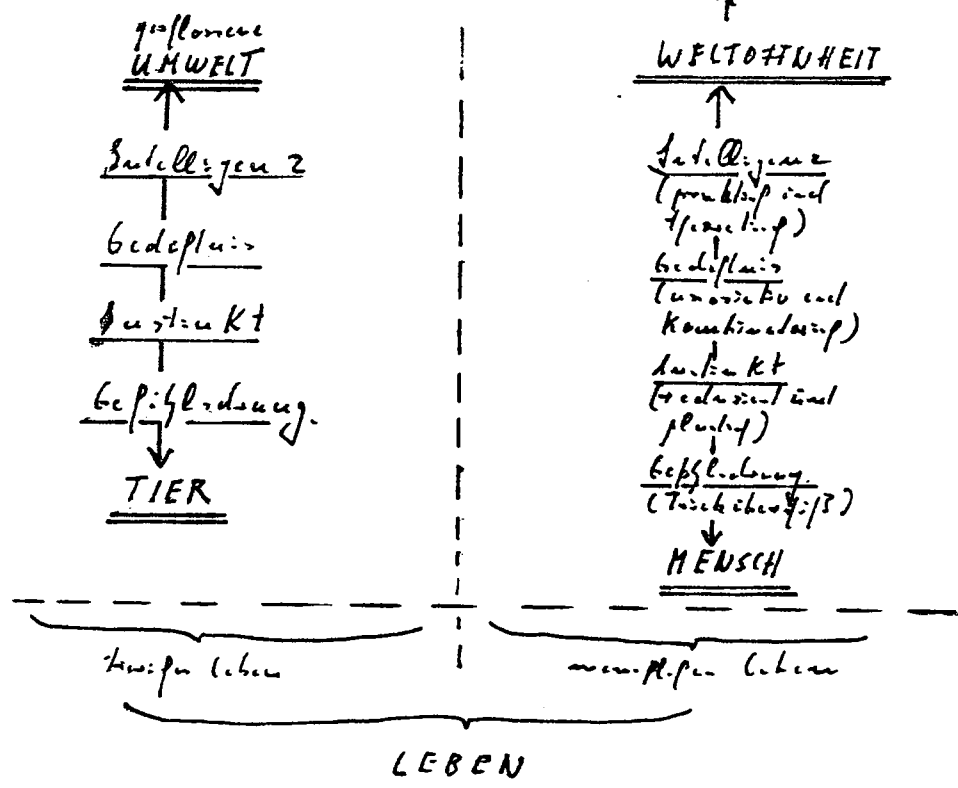 geschlossene
UMWELT
Intelligenz
Gedächtnis
Instinkt
Gefühlsdrang.
TIER
WELTOFFNHEIT
Intelligenz
(praktisch und
Gedächtnis
(assoziativ und
Instinkt
(reduziert und
Gefühlsdrang.
(Triebüberschuß)
MENSCH
tierisches Leben
menschliches Leben
LEBEN